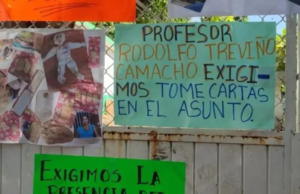 PROFESOR
RODOLFO TREVIÑO
CAMACHO EXIGI-
MOS TOME CARTAS
EN EL ASUNTO.
EXIGIMOS LA
PRESENCIA DEL